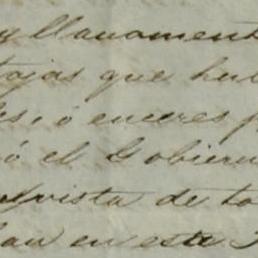 y llanament
tajas que hu
les, ó enceres p
ó el Gobiern
vista de to
en este